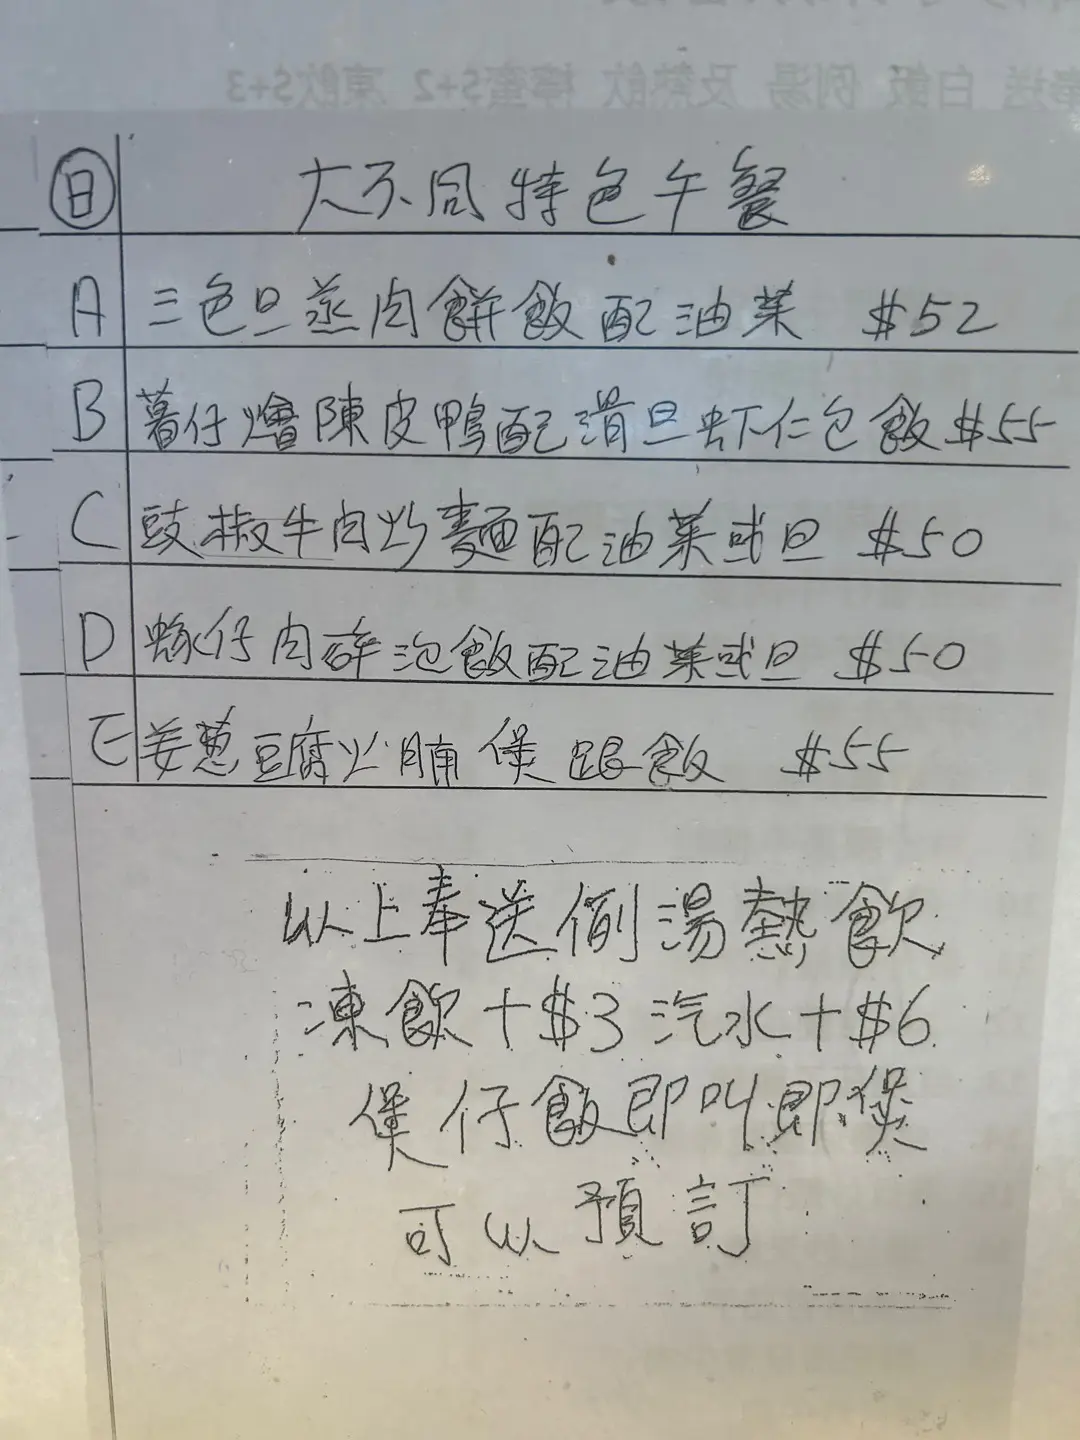 奉送 白飯 例湯 及熱飲 檸蜜$+2 凍飲$+3
日 大不同特色午餐
A 三色旦蒸肉餅飯配油菜 $52
B 薯仔燴陳皮鴨配滑旦虾仁包飯 $55
C 豉椒牛肉炒麵配油菜或旦 $50
D 蠔仔肉碎泡飯配油菜或旦 $50
E 姜葱豆腐火腩煲跟飯 $55
以上奉送例湯熱飲
凍飲+$3 汽水+$6
煲仔飯即叫即煲
可以預訂